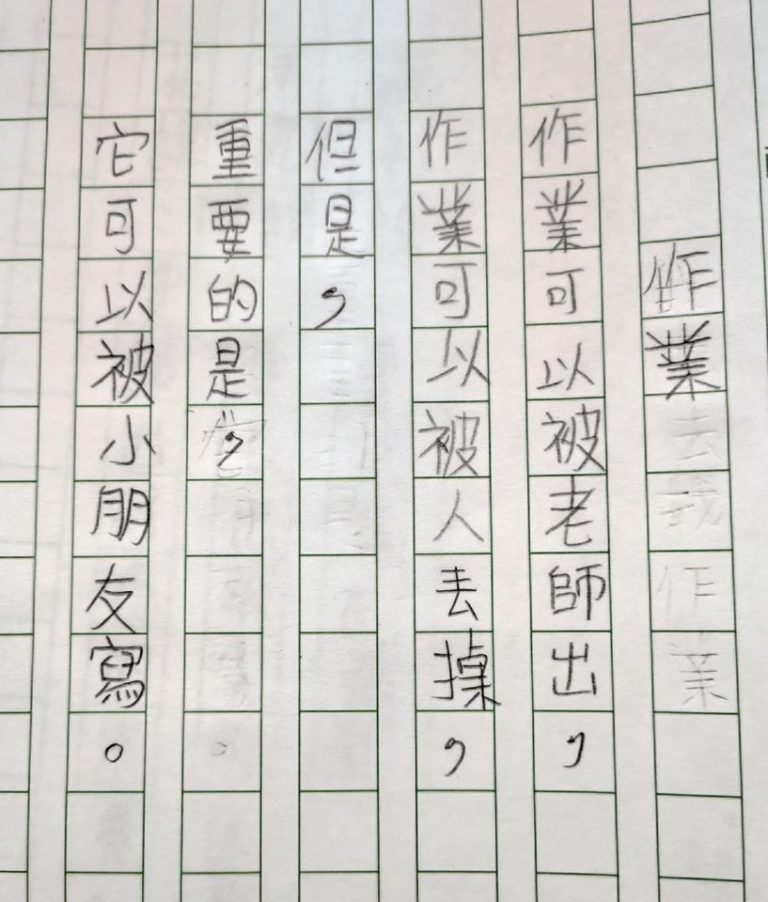 作業
作業可以被老師出，
作業可以被人丟掉，
但是，
重要的是，
它可以被小朋友寫。